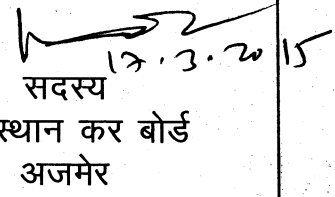 17.3.2015
सदस्य
स्थान कर बोर्ड
अजमेर